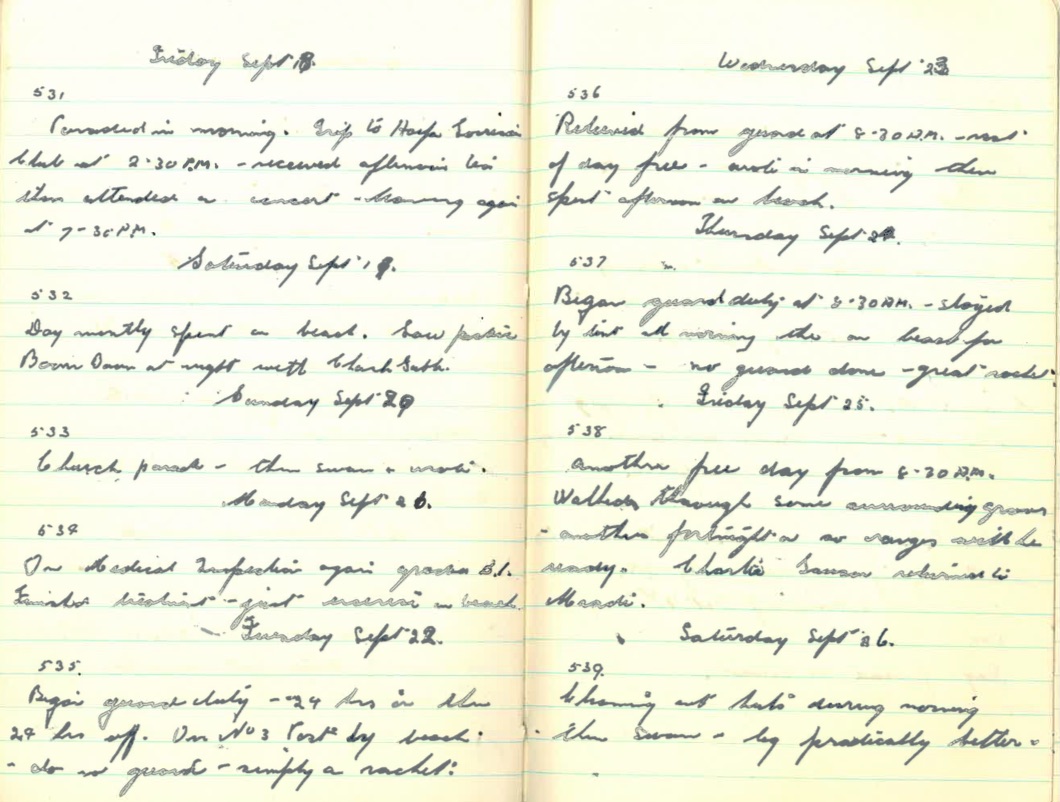 Friday Sept 18.
531
Paraded in morning. Trip to Haifa
Club at 2-30 P.M. - received afternoon tea
then attended a concert - again
at 7-30 P.M.
Saturday Sept 19.
532
Day mostly spent on beach. Saw picture
Boom Town at night with
Sunday Sept 20
533
Church parade - then swam & wrote.
Monday Sept
534
On Medical Inspection again graded B.1.
Finished treatment - just exercise on beach.
Tuesday Sept 22.
535.
Began guard duty - 24 hrs on then
24 hrs off. On No 3 Post by beach
- do no guard - simply a racket!
Wednesday Sept 23
536
Relieved from guard at 8-30 A.M. - rest
of day free - wrote in morning then
spent afternoon on beach.
Thursday Sept 24.
537
Began guard duty at 8-30 A.M. - stayed
by tent all morning the on beach for
afternoon - no guard done - great racket.
Friday Sept 25.
538
Another free day from 8-30 A.M.
Walked through some surrounding groves
- another fortnight or so oranges will be
ready. Charlie returned to
Maadi.
Saturday Sept 26.
539.
Cleaning out huts during morning
then swam - leg practically better.